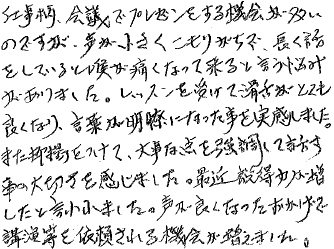 仕事柄、会議でプレゼンをする機会が多い
のですが、声が小さくこもりがちで、長く話
をしていると喉が痛くなって来ると言う悩み
がありました。レッスンを受けて滑舌がとても
良くなり、言葉が明瞭になった事を実感しました。
また抑揚をつけて、大事な点を強調して話す
事の大切さを感じました。最近説得力が増
したと言われました。声が良くなったおかげで
講演等を依頼される機会が増えました。